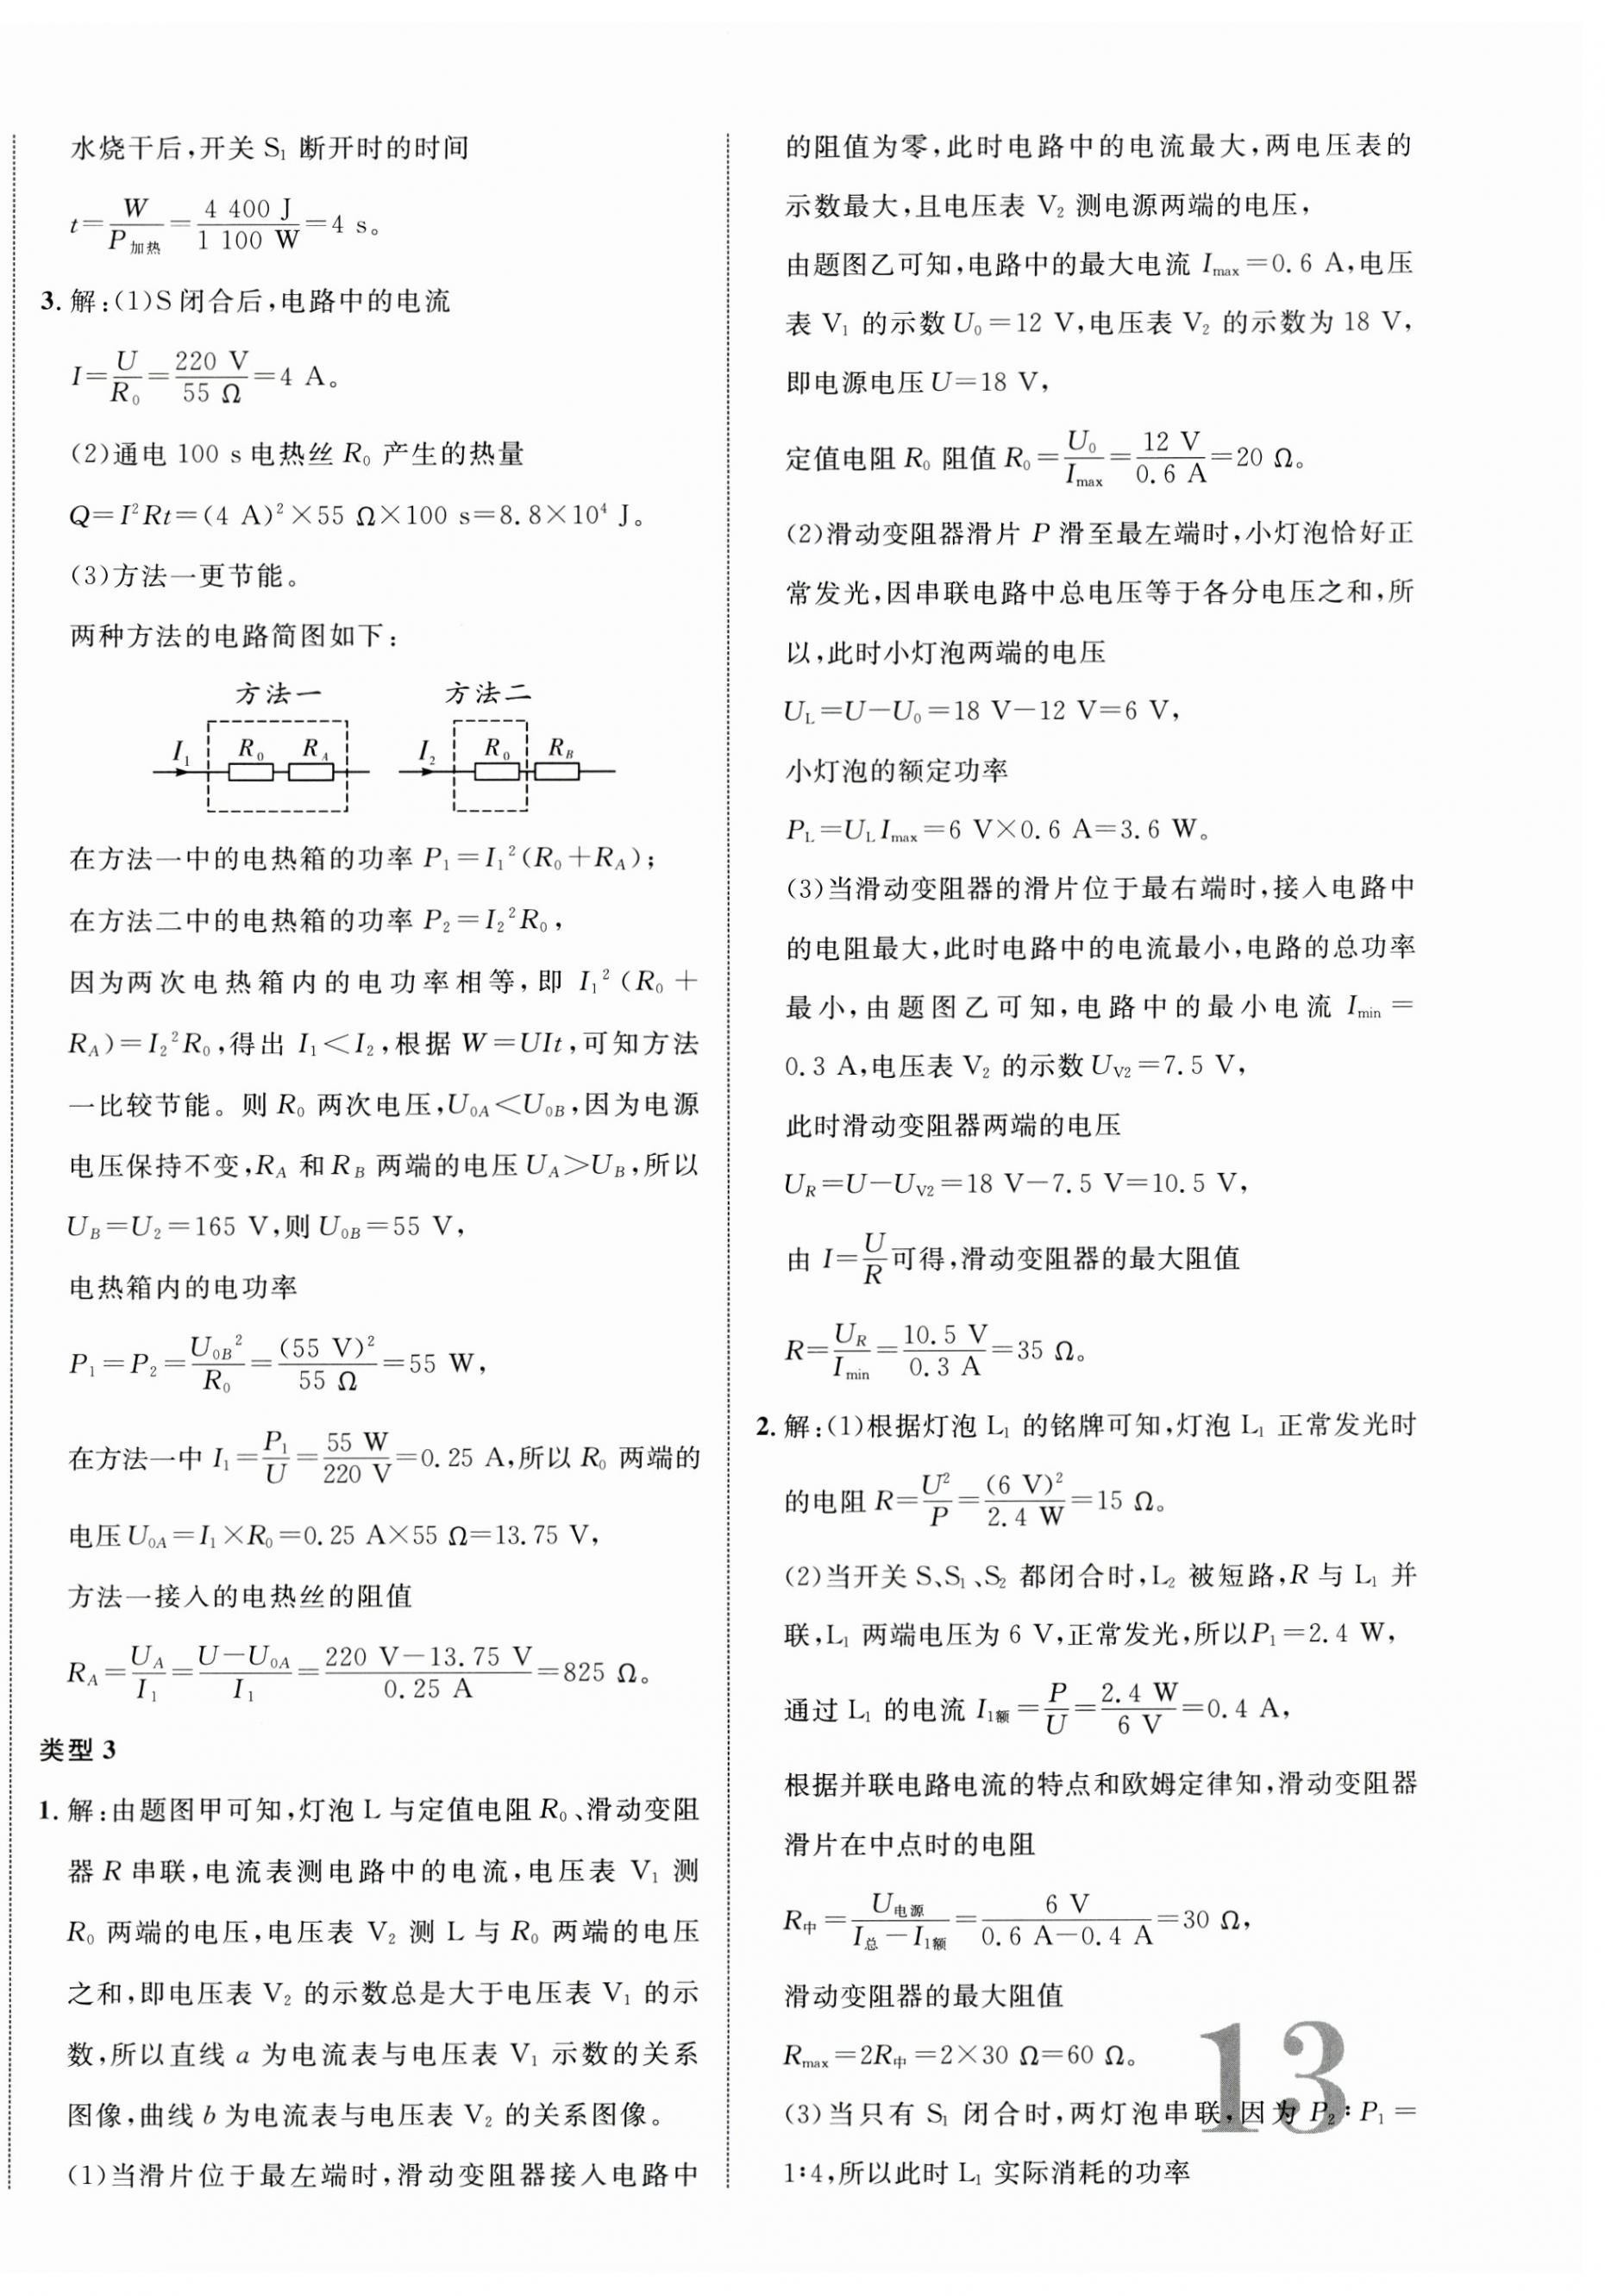 水烧干后,开关 S₁ 断开时的时间
t=W/P加热=4 400 J/1 100 W=4 s。
3. 解:(1)S闭合后,电路中的电流
I=U/R₀=220 V/55 Ω=4 A。
(2)通电 100 s 电热丝 R₀ 产生的热量
Q=I²Rt=(4 A)²×55 Ω×100 s=8.8×10⁴ J。
(3)方法一更节能。
两种方法的电路简图如下:
方法一 方法二
I₁ R₀ R_A I₂ R₀ R_B
在方法一中的电热箱的功率 P₁=I₁²(R₀+R_A);
在方法二中的电热箱的功率 P₂=I₂²R₀,
因为两次电热箱内的电功率相等,即 I₁²(R₀+
R_A)=I₂²R₀,得出 I₁<I₂,根据 W=UIt,可知方法
一比较节能。则 R₀ 两次电压,U₀A<U₀B,因为电源
电压保持不变,R_A 和 R_B 两端的电压 U_A>U_B,所以
U_B=U₂=165 V,则 U₀B=55 V,
电热箱内的电功率
P₁=P₂=U₀B²/R₀=(55 V)²/55 Ω=55 W,
在方法一中 I₁=P₁/U=55 W/220 V=0.25 A,所以 R₀ 两端的
电压 U₀A=I₁×R₀=0.25 A×55 Ω=13.75 V,
方法一接入的电热丝的阻值
R_A=U_A/I₁=(U-U₀A)/I₁=(220 V-13.75 V)/0.25 A=825 Ω。
类型 3
1. 解:由题图甲可知,灯泡 L 与定值电阻 R₀、滑动变阻
器 R 串联,电流表测电路中的电流,电压表 V₁ 测
R₀ 两端的电压,电压表 V₂ 测 L 与 R₀ 两端的电压
之和,即电压表 V₂ 的示数总是大于电压表 V₁ 的示
数,所以直线 a 为电流表与电压表 V₁ 示数的关系
图像,曲线 b 为电流表与电压表 V₂ 的关系图像。
(1)当滑片位于最左端时,滑动变阻器接入电路中
的阻值为零,此时电路中的电流最大,两电压表的
示数最大,且电压表 V₂ 测电源两端的电压,
由题图乙可知,电路中的最大电流 I_max=0.6 A,电压
表 V₁ 的示数 U₀=12 V,电压表 V₂ 的示数为 18 V,
即电源电压 U=18 V,
定值电阻 R₀ 阻值 R₀=U₀/I_max=12 V/0.6 A=20 Ω。
(2)滑动变阻器滑片 P 滑至最左端时,小灯泡恰好正
常发光,因串联电路中总电压等于各分电压之和,所
以,此时小灯泡两端的电压
U_L=U-U₀=18 V-12 V=6 V,
小灯泡的额定功率
P_L=U_L I_max=6 V×0.6 A=3.6 W。
(3)当滑动变阻器的滑片位于最右端时,接入电路中
的电阻最大,此时电路中的电流最小,电路的总功率
最小,由题图乙可知,电路中的最小电流 I_min=
0.3 A,电压表 V₂ 的示数 U_V2=7.5 V,
此时滑动变阻器两端的电压
U_R=U-U_V2=18 V-7.5 V=10.5 V,
由 I=U/R可得,滑动变阻器的最大阻值
R=U_R/I_min=10.5 V/0.3 A=35 Ω。
2. 解:(1)根据灯泡 L₁ 的铭牌可知,灯泡 L₁ 正常发光时
的电阻 R=U²/P=(6 V)²/2.4 W=15 Ω。
(2)当开关 S、S₁、S₂ 都闭合时,L₂ 被短路,R 与 L₁ 并
联,L₁ 两端电压为 6 V,正常发光,所以 P₁=2.4 W,
通过 L₁ 的电流 I₁额=P/U=2.4 W/6 V=0.4 A,
根据并联电路电流的特点和欧姆定律知,滑动变阻器
滑片在中点时的电阻
R中=U电源/(I总-I₁额)=6 V/(0.6 A-0.4 A)=30 Ω,
滑动变阻器的最大阻值
R_max=2R中=2×30 Ω=60 Ω。
(3)当只有 S₁ 闭合时,两灯泡串联,因为 P₂∶P₁=
1∶4,所以此时 L₁ 实际消耗的功率
13